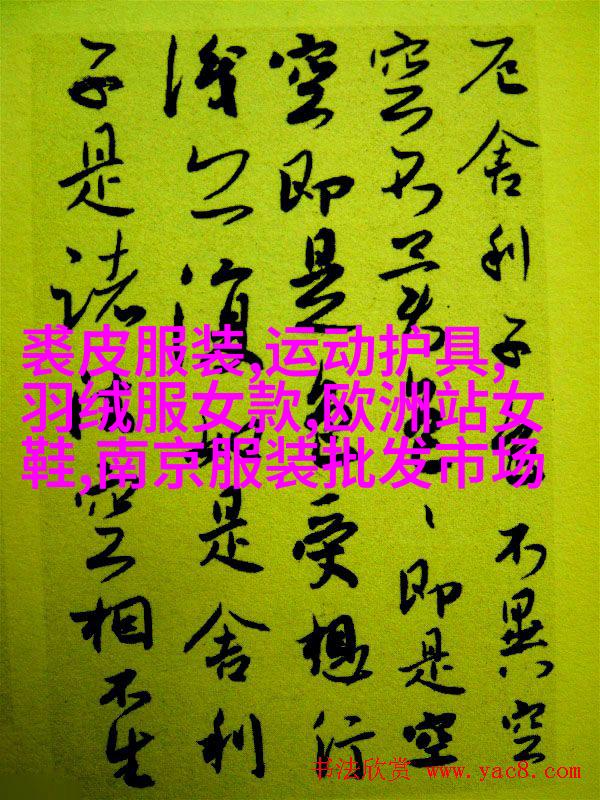 厄舍利子不異空
空不異色、即是空
空即是色受想行
識亦復是舍利
子是諸法空相不生
裘皮服装,运动护具,
羽绒服女款,欧洲站女
鞋,南京服装批发市场
书法欣赏 www.yac8.com